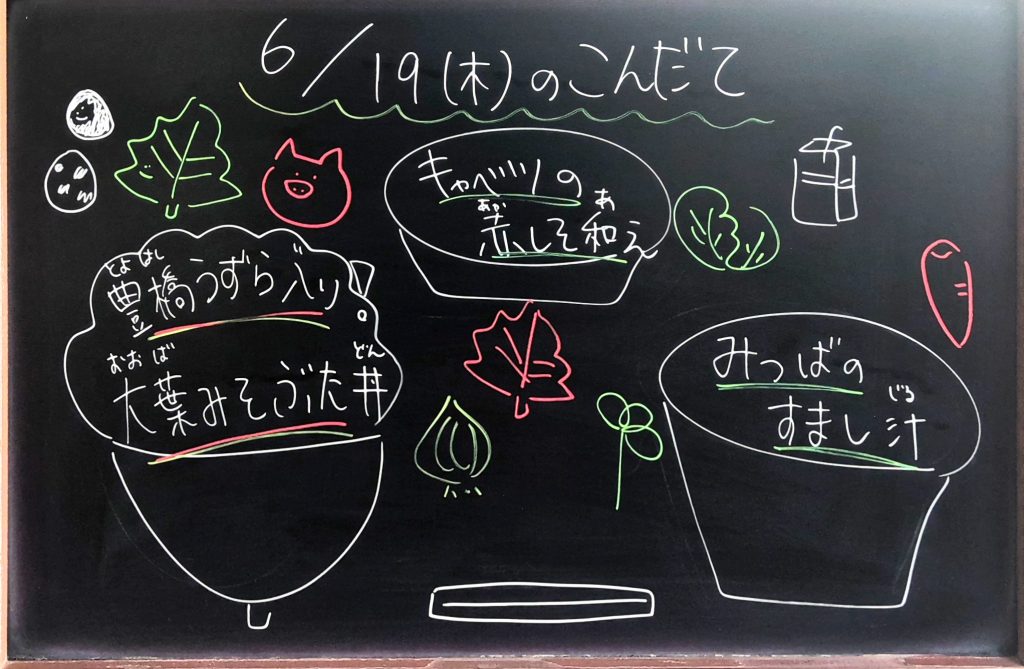 6/19(木)のこんだて
キャベツの
赤しそ和え
あか あ
豊橋うずら入り
とよ はし
大葉みそぶた丼
おお ば どん
みつばの
すまし汁
じる